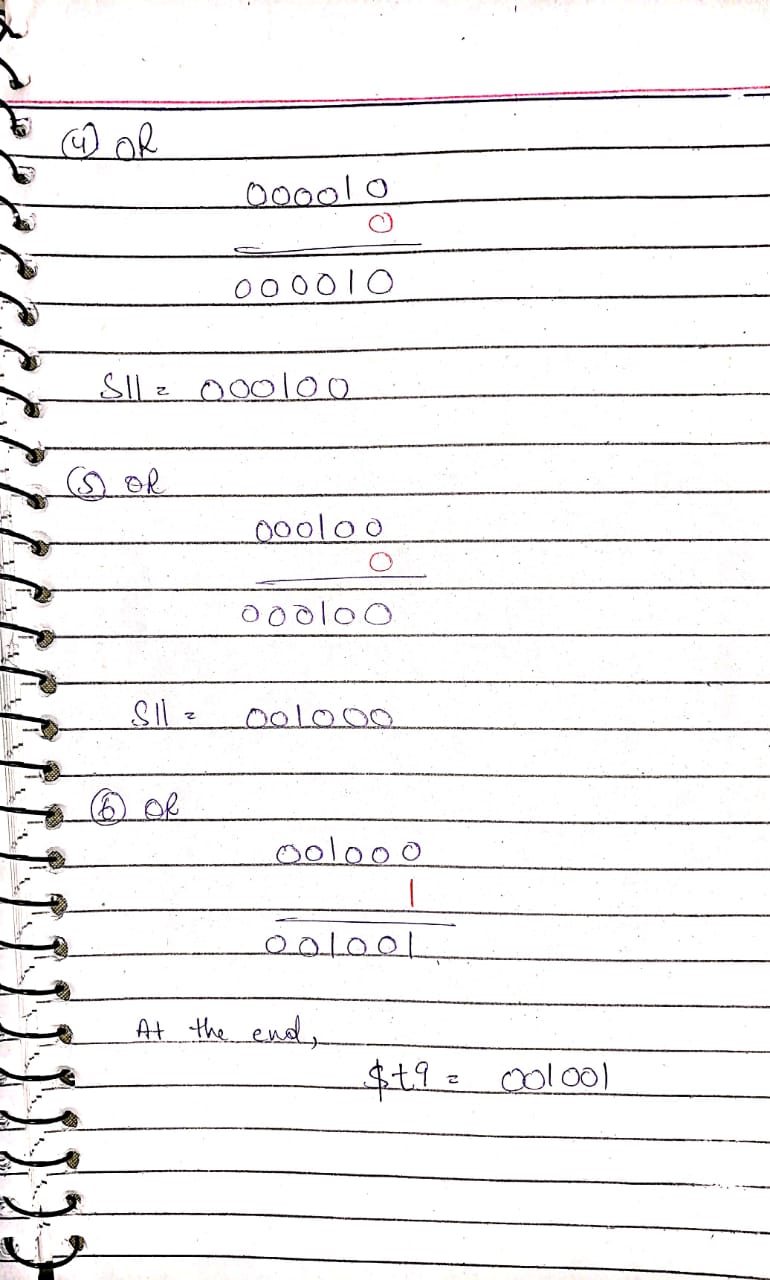 (4) OR
000010
0
000010
Sll = 000100
(5) OR
000100
0
000100
Sll = 001000
(6) OR
001000
1
001001
At the end,
$t9 = 001001